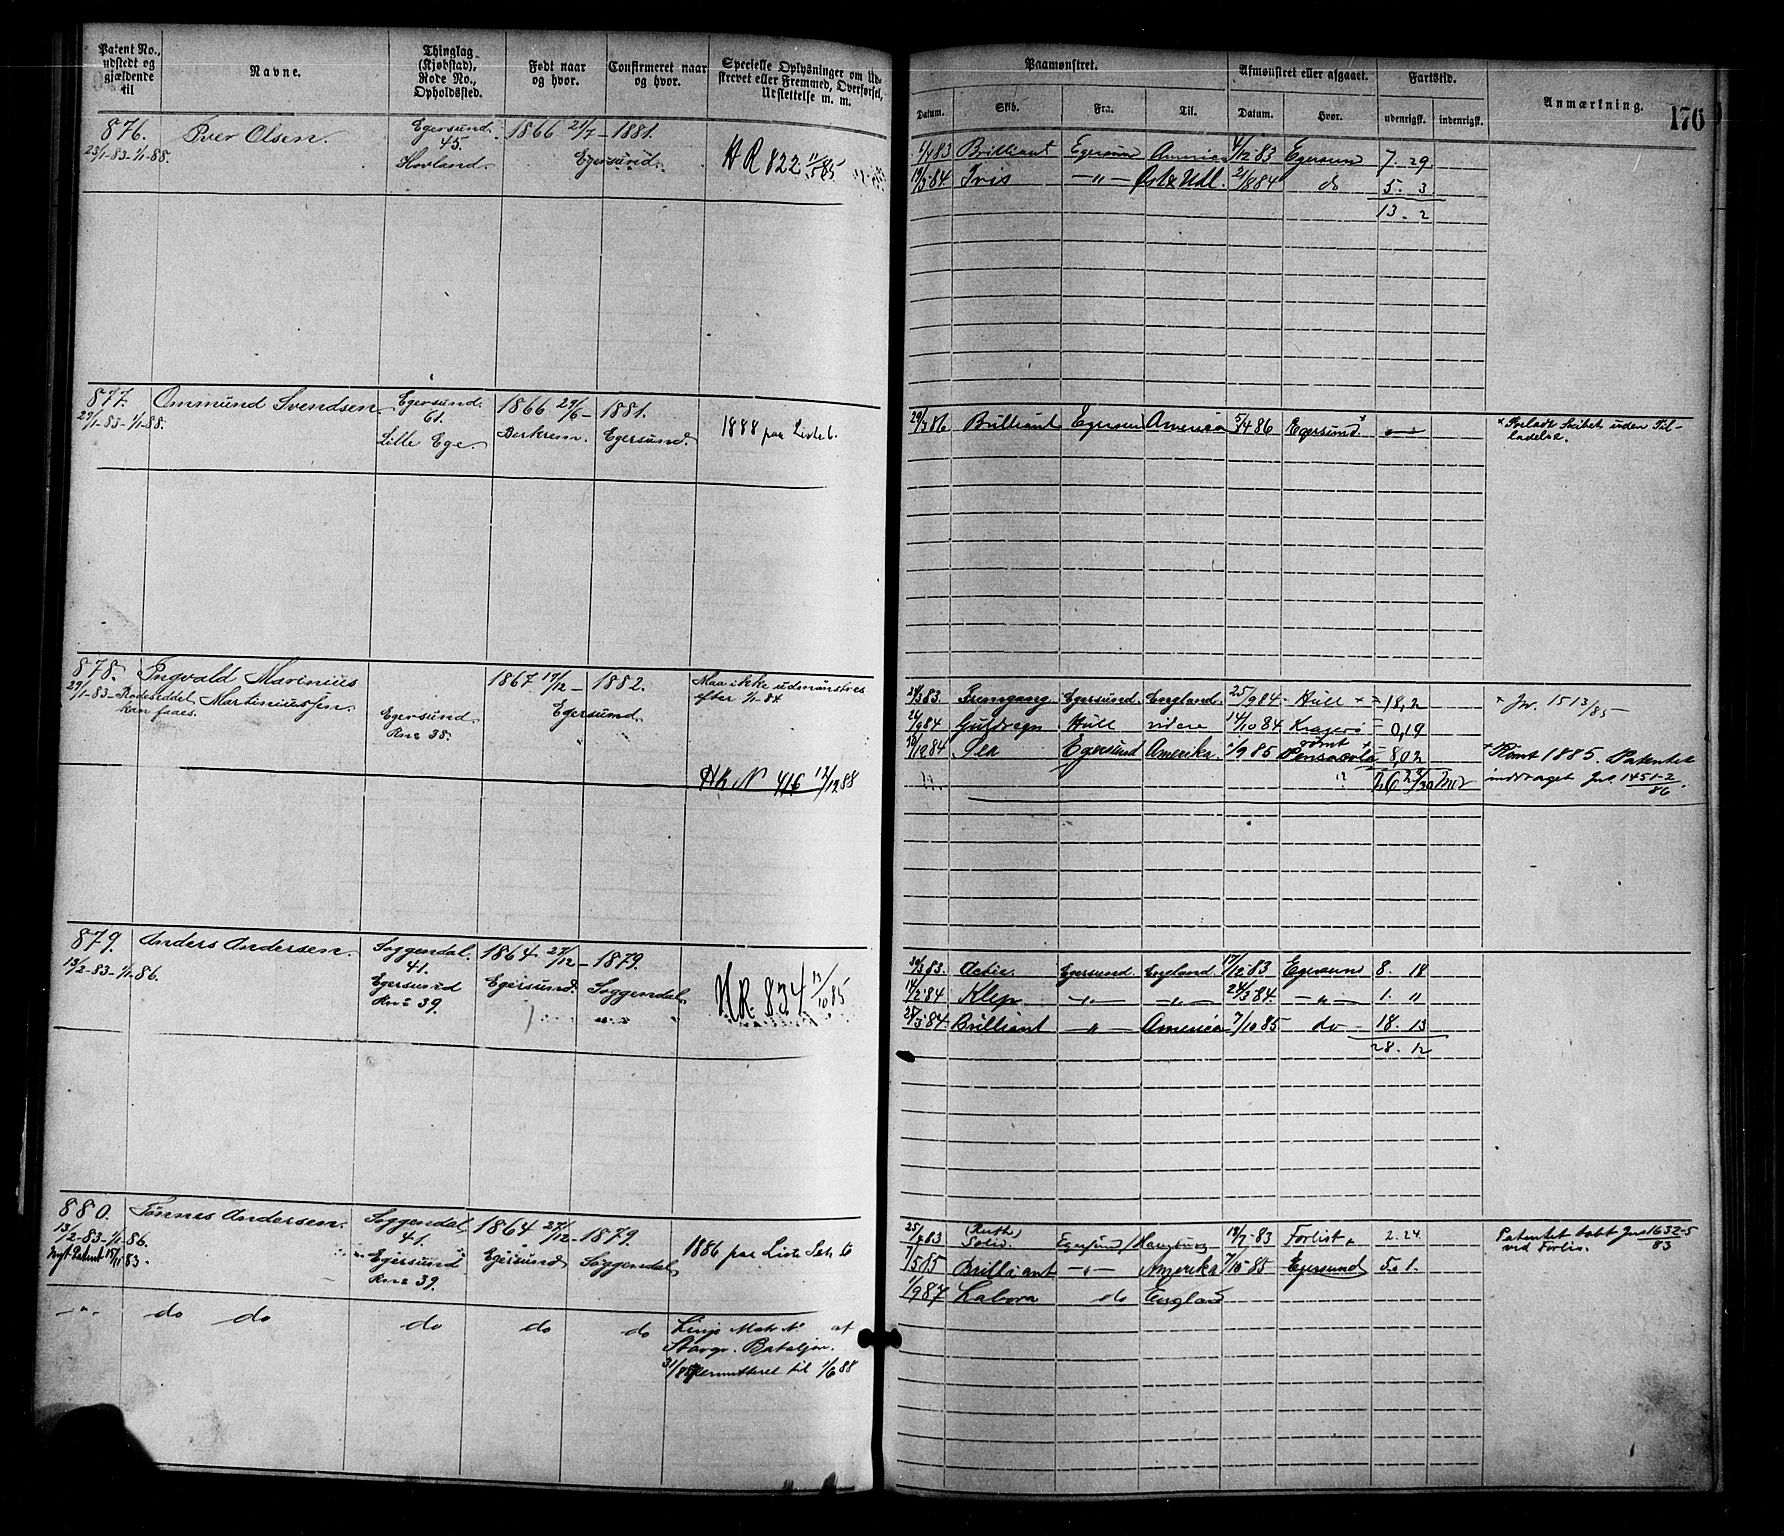 Patent No., udstedt og gjældende til
Navne.
Thinglag (Kjøbstad), Rode No., Opholdssted.
Født naar og hvor.
Confirmeret naar og hvor.
Specielle Oplysninger om Udskrevet eller Fremmed, Overførsel, Udslettelse m. m.
Paamønstret.
Datum.
Skib.
Fra.
Til.
Afmønstret eller afgaaet.
Datum.
Hvor.
Fartstid.
udenrigsk.
indenrigsk.
Anmærkning.
176
876.
23/1-83-1/1-88.
Peer Olsen.
Egersund.
45.
Hovland.
1866 21/7 - 1881.
Egersund.
HR 822 11/5 85
Brilliant Egersund 4/12-83 Egersund 7. 29.
Iris -"- Øst & Udl. 21/8 84 do 5. 3
13. 2
877.
29/1-83-1/1-88.
Ommund Svendsen.
Egersund.
61.
Lille Ege.
1866 29/6 - 1881.
Berkrem. Egersund.
1888 paa Liste
29/3 86 Brilliant America 5/4 86 Egersund
× Forladt Skibet uden Tilladelse.
878.
29/1-83- Rodeseddel
kan faaes.
Ingvald Marinius
Martiniussen.
Egersund
Rnr 38.
1867 17/12 - 1882.
Egersund.
Maa ikke udmønstres
efter 1/1-84
HR N 416 12/12 88
Fremgang Egersund. England. 25/9 84 - Hull × = 18,2
Guldregn Hull videre 14/10 84 Kragerø = 0,19
Egersund Amerika 1/9 85 rømt Pensacola = 8,02
× Jr. 1513/85
+ Rømt 1885. Patentet
inddraget Jnr. 1451-2/86.
879.
13/2-83-1/1-86.
Anders Andersen.
Soggendal.
41.
Egersund
Rnr 39.
1864 27/12 - 1879.
Egersund. Soggendal.
HR 834 13/10 85
Activ Egersund. England. 17/12 83 Egersund 8. 18
14/2 84 Klep. -"- -"- 24/3 84. -"- 1. "
28/3 84 Brilliant -"- America 7/10 85 do 18. 13
28. 12
880.
13/2-83-1/1-86.
Nyt Patent 15/11 83.
Tønnes Andersen.
Soggendal.
41.
Egersund
Rnr 39.
1864 27/12 - 1879.
Egersund Soggendal
1886 paa Liste
25/4 83 (Ruth) Solid. Egersund Hamburg 19/7 83 Forlist 2. 24.
7/5 85 Brilliant -"- Amerika 7/10 85 Egersund 5. 1.
1/9 87 Labora do England
Patentet tabt Jnr 1632-5/83
ved Forlis.
-"- do do do do do
Linje Matr N. af
Stavgr. Bataljon.
permitteret til 1/6 88